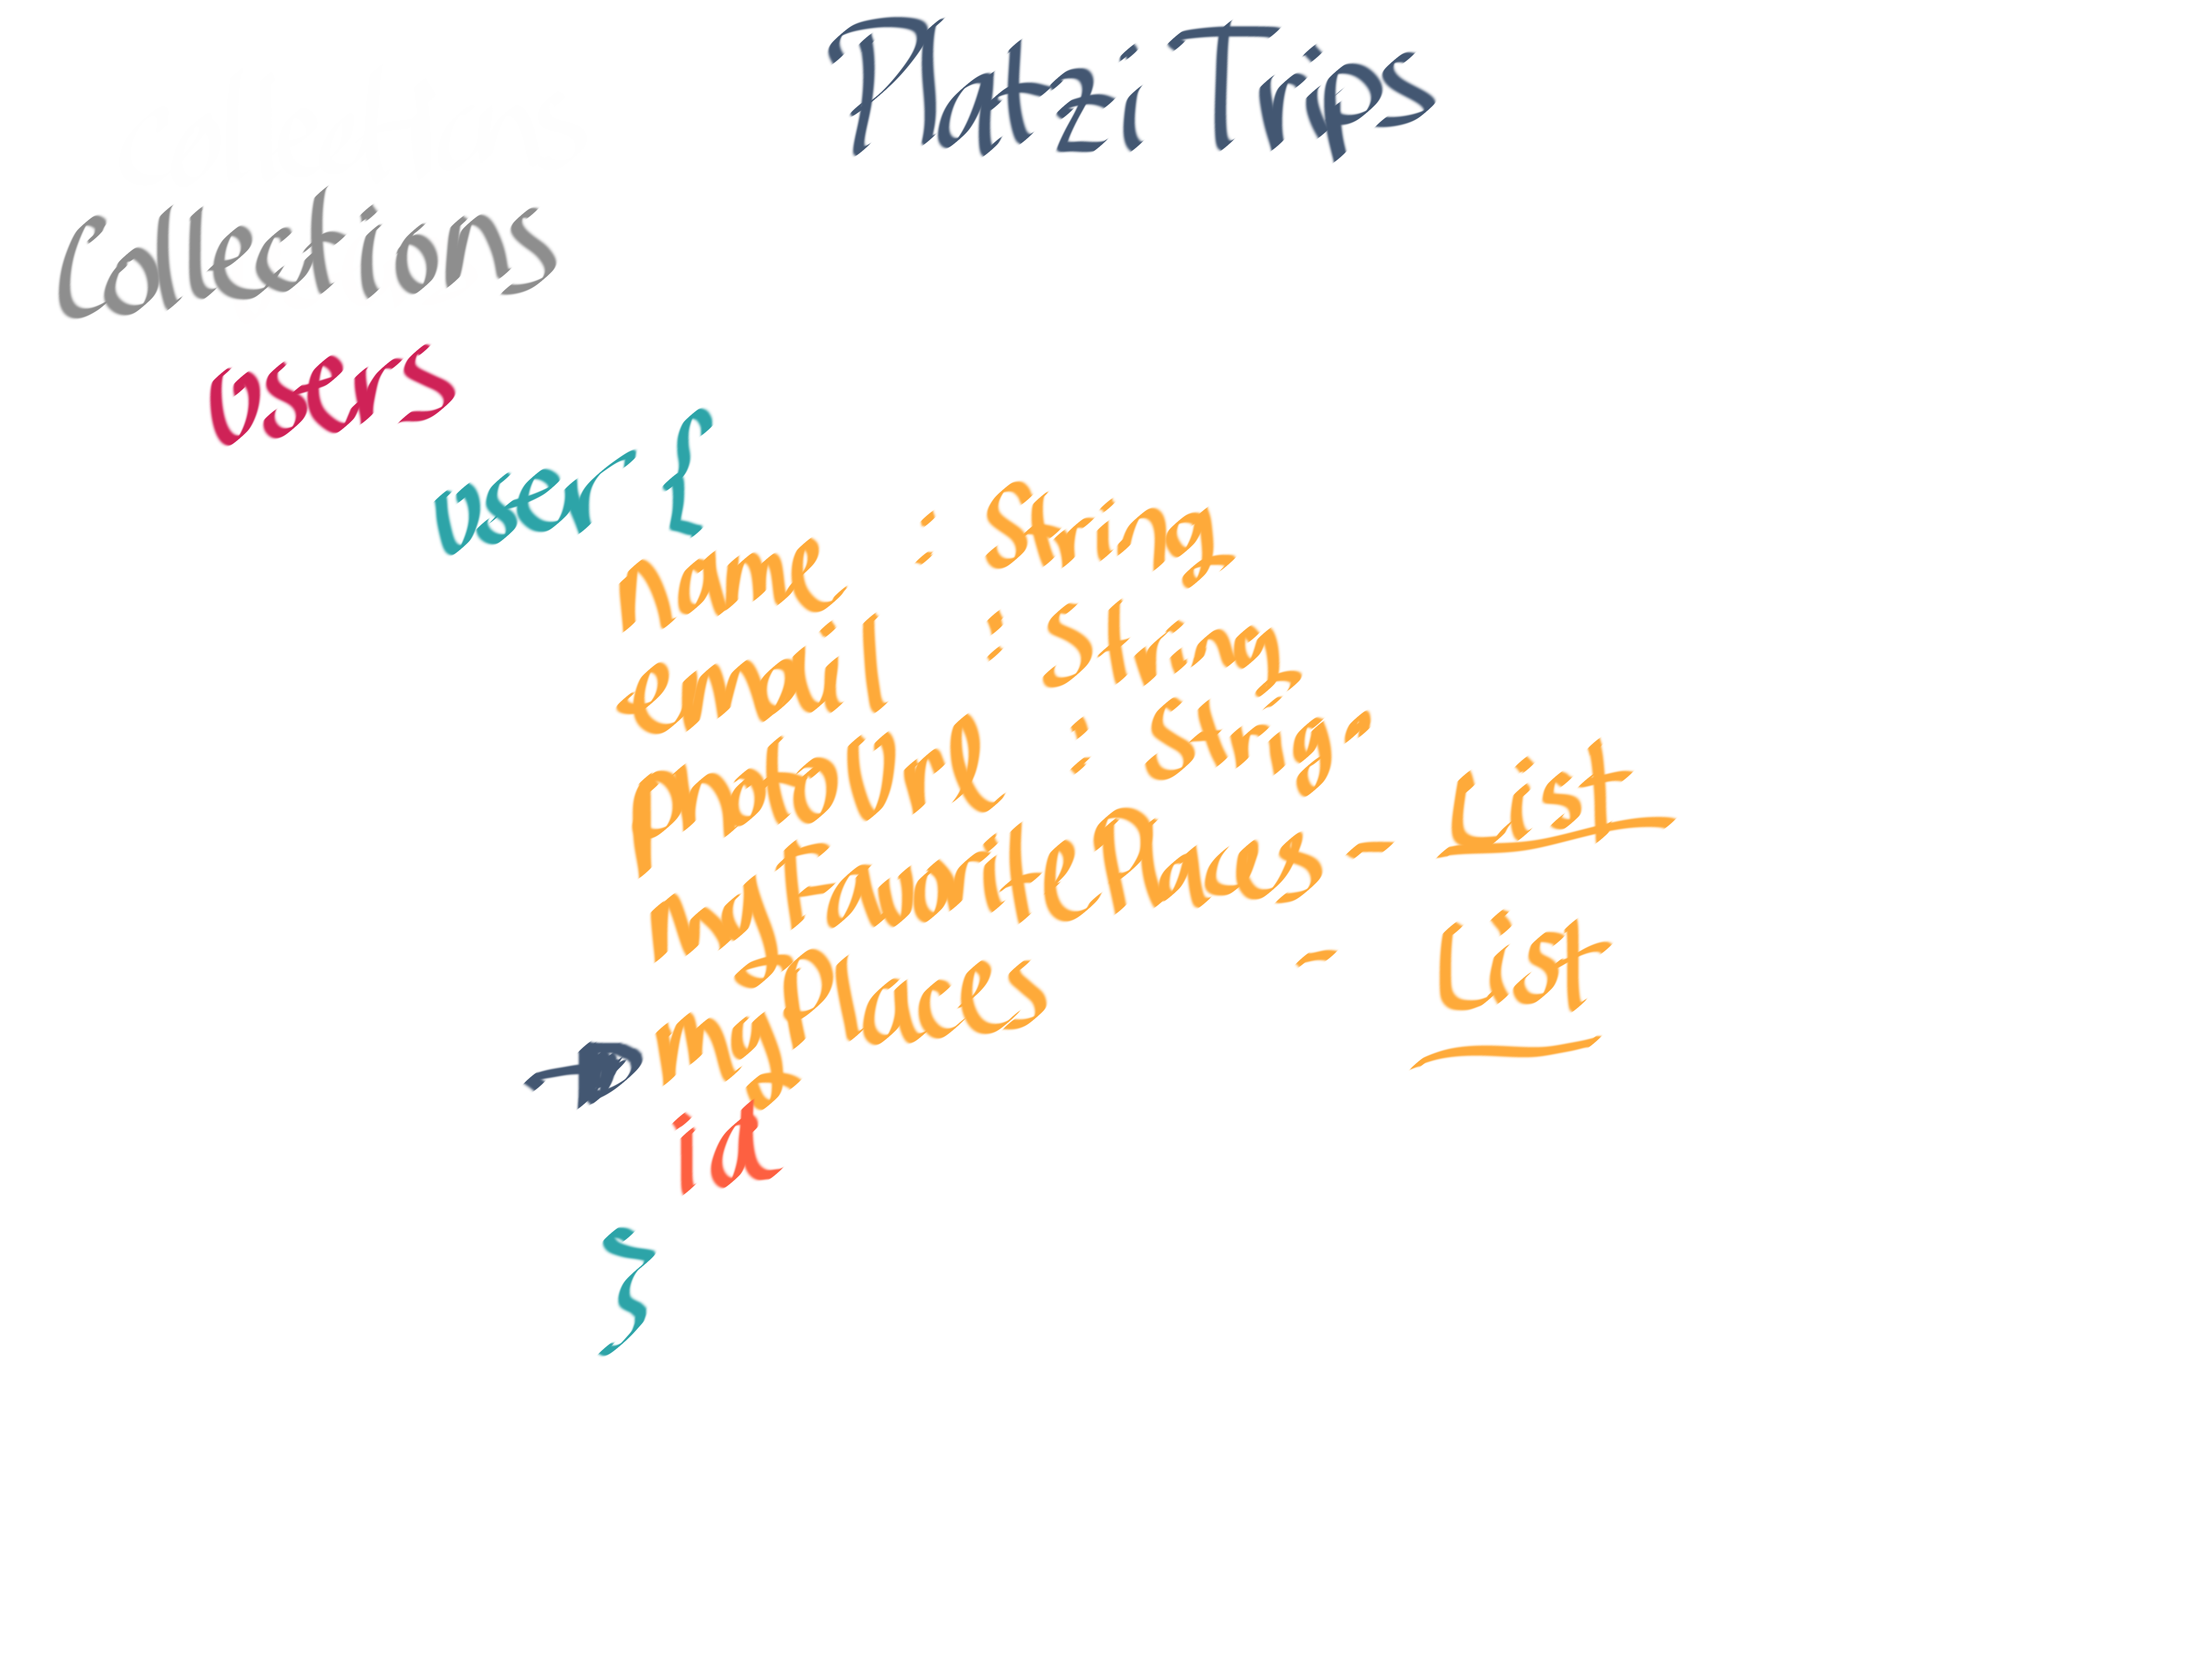 Platzi Trips
Collections
users
user {
name : String
email : String
photoUrl : Strig.
myFavoritePlaces - List
myPlaces - List
id
}